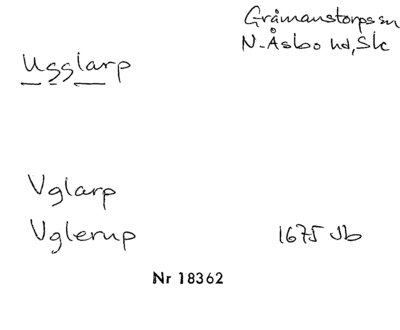 Gråmanstorps sn
N. Åsbo hd, Sk
Ugglarp
Vglarp
Vglerup 1675 Jb
Nr 18362